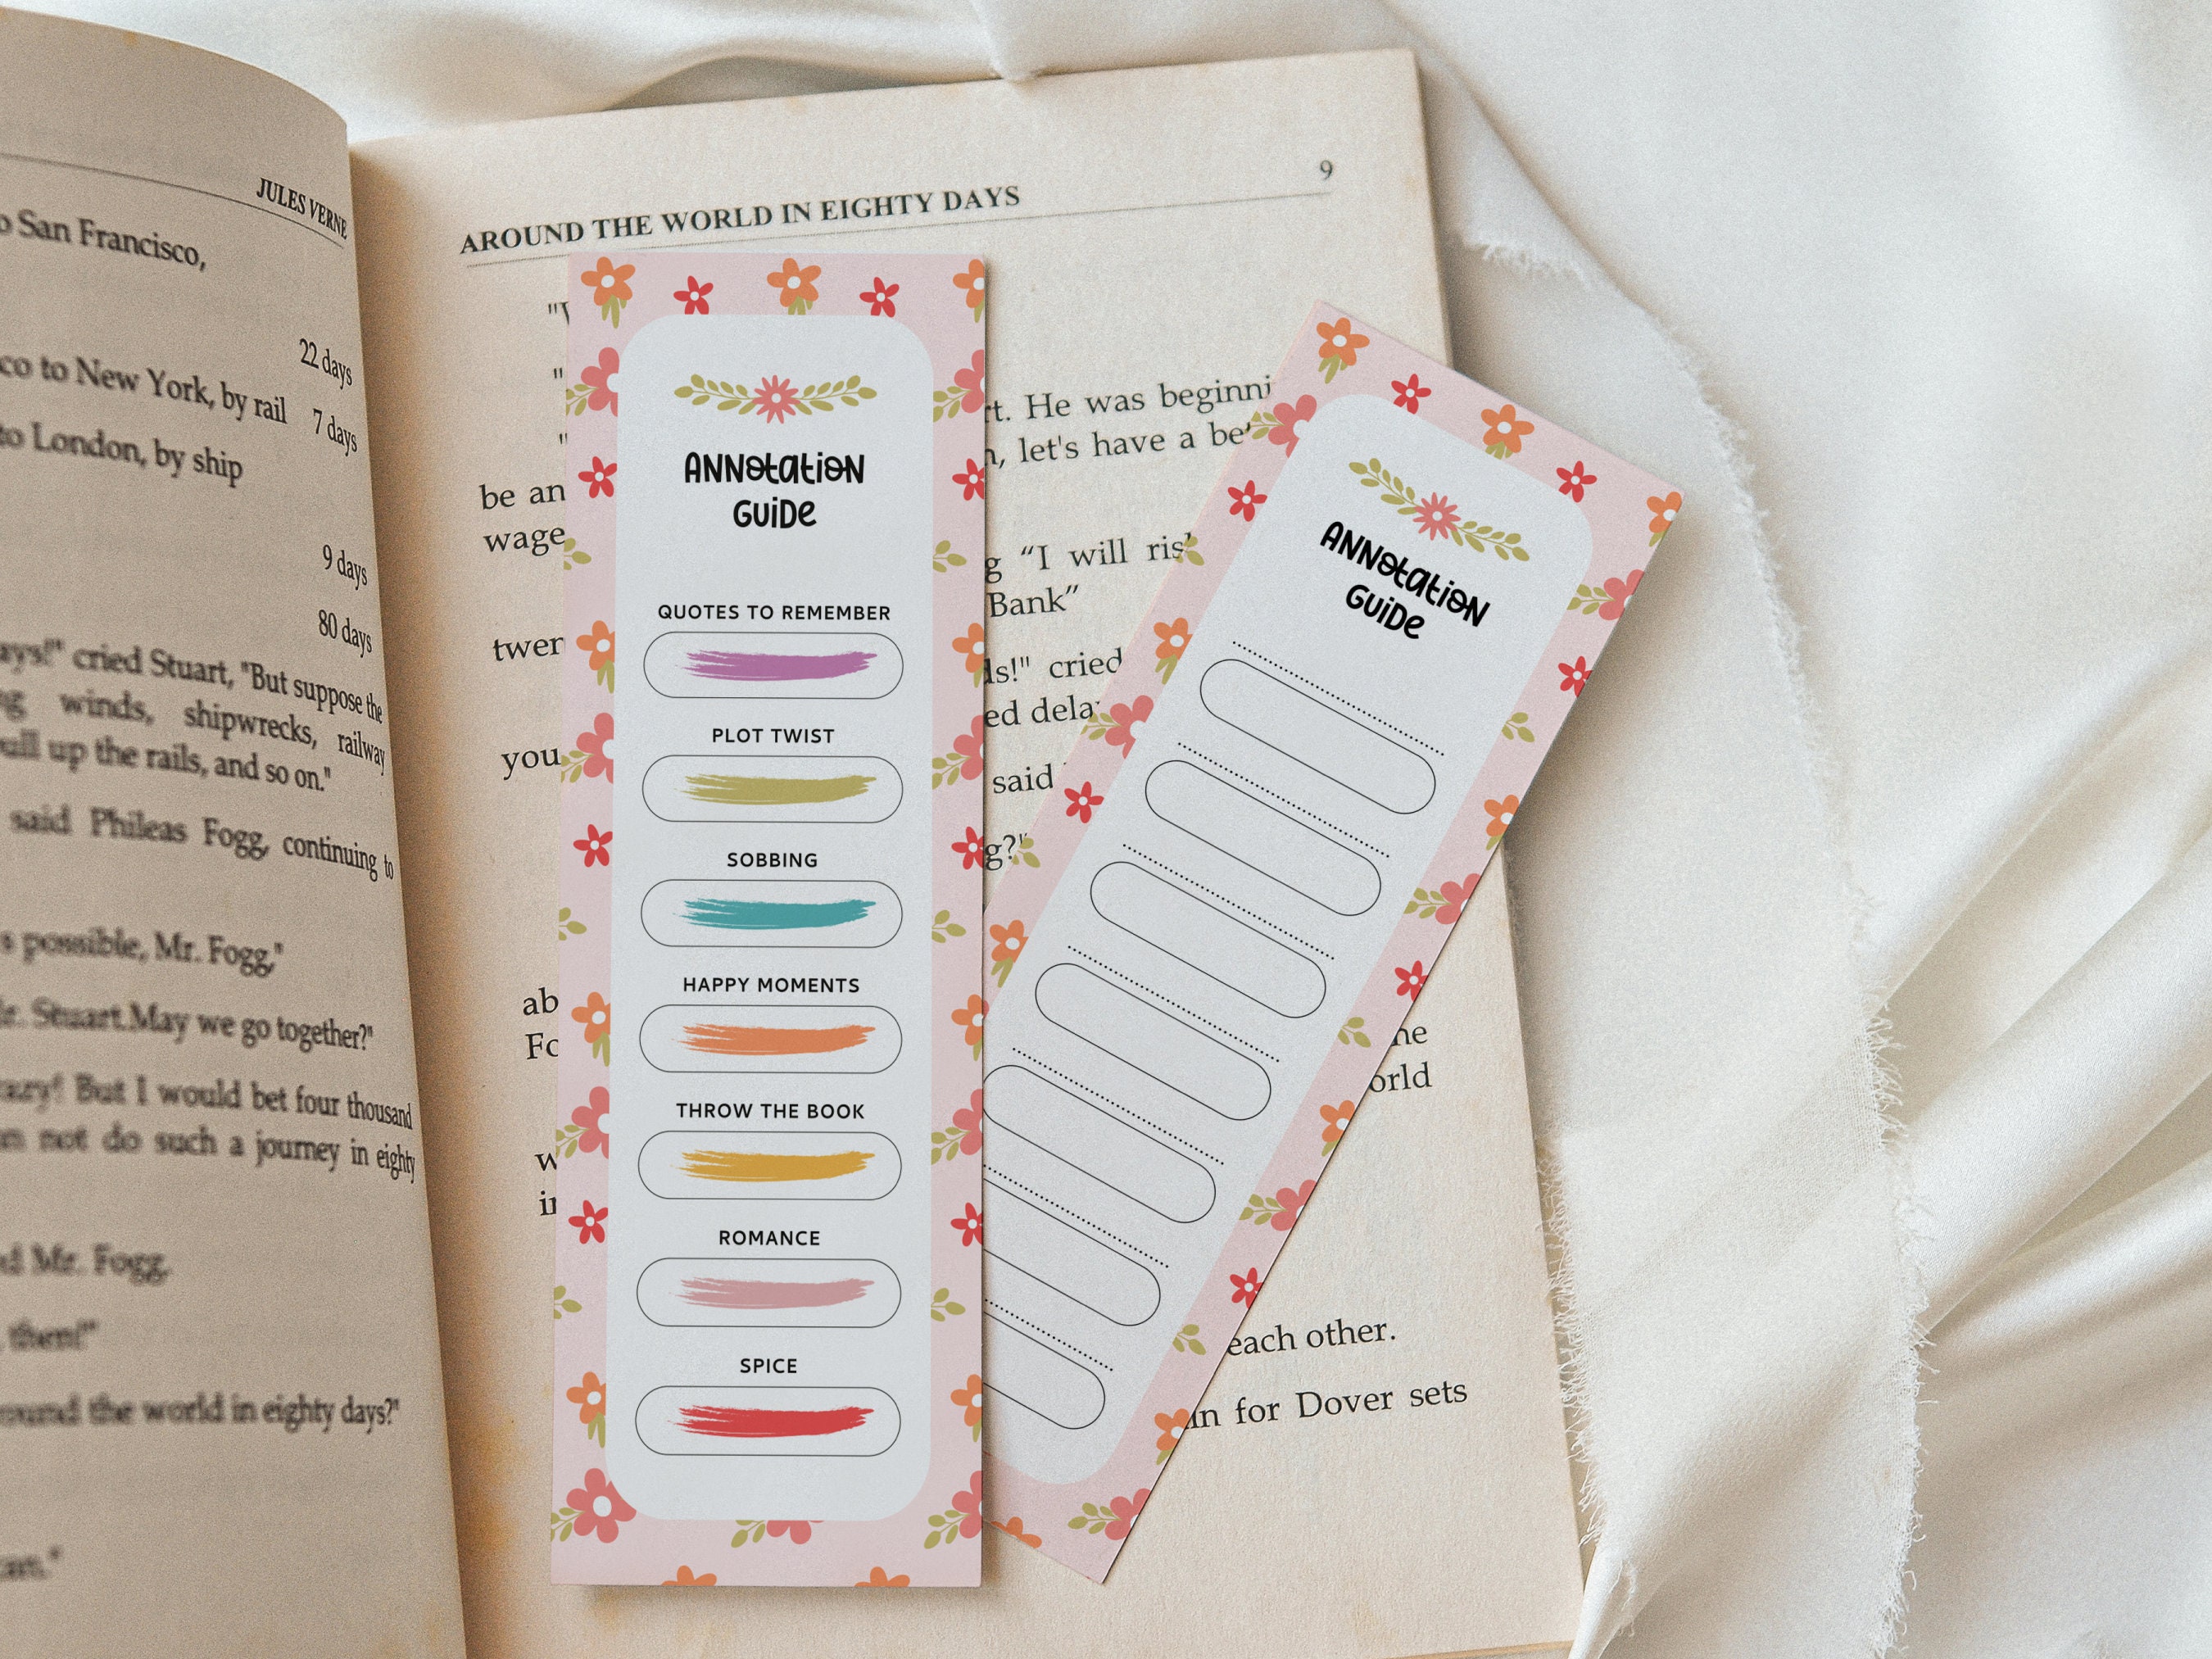 JULES VERNE
San Francisco,
22 days
co to New York, by rail 7 days
to London, by ship
9 days
80 days
ays!" cried Stuart, "But suppose the
ng winds, shipwrecks, railway
pull up the rails, and so on."
said Phileas Fogg, continuing to
s possible, Mr. Fogg,"
Stuart.May we go together?"
But I would bet four thousand
not do such a journey in eighty
Mr. Fogg.
them!"
the world in eighty days?"
AROUND THE WORLD IN EIGHTY DAYS 9
rt. He was beginni
let's have a be
be an
wage
“I will ris
Bank”
twen
ds!" cried
ed dela
you
said
g?"
ab
Fo
ne
orld
w
in
each other.
for Dover sets
ANNOtatiON
GUIDe
QUOTES TO REMEMBER
PLOT TWIST
SOBBING
HAPPY MOMENTS
THROW THE BOOK
ROMANCE
SPICE
ANNOtatiON
GUIDe